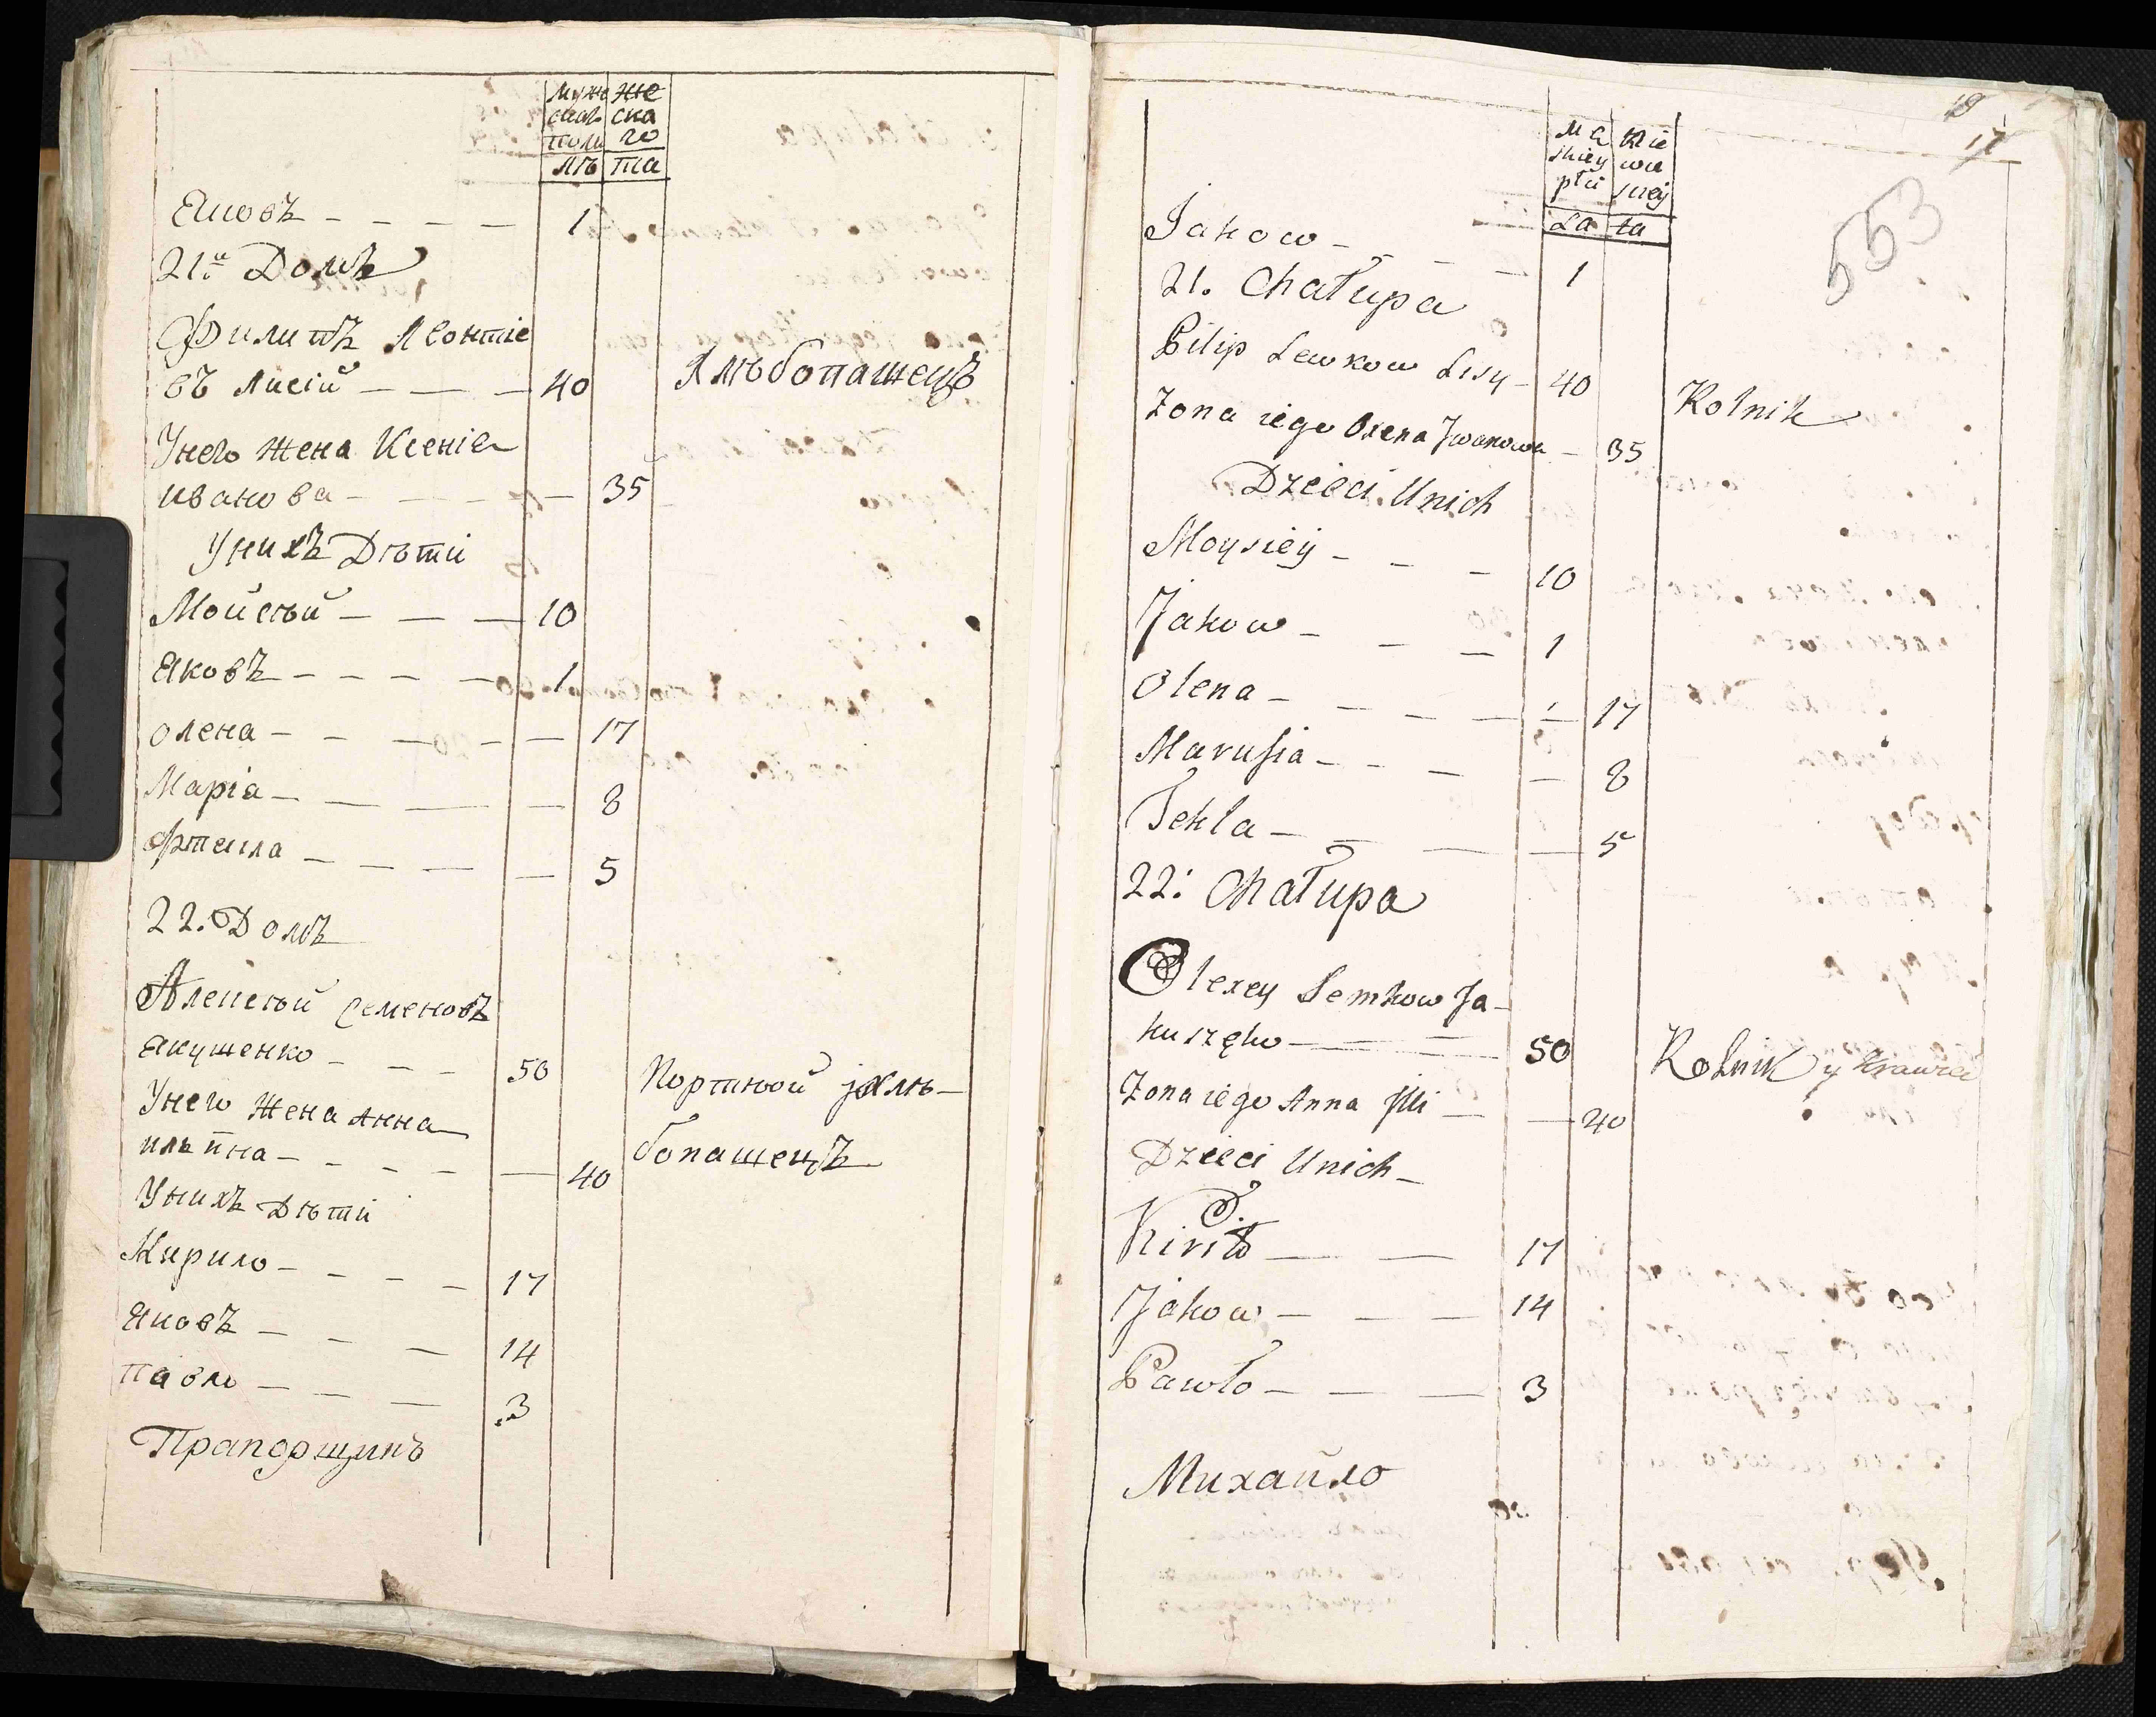 Мужескаго полу Женскаго
лѣта
Яковъ - - - - 1
21й Домъ
Филипъ Леонтіе
въ Лисій - - - 40 Хлѣбопашецъ
Унего жена Ксенія
иванова - - - - 35
Унихъ Дѣти
Мойсѣй - - - 10
Яковъ - - - - 1
олена - - - - - 17
Марія - - - - - 8
Фтекла - - - - 5
22. Домъ
Алексѣй Семеновъ
Якушенко - - - 50 Портной і хлѣ-
Унего жена Анна
ильина - - - - - 40 бопашецъ
Унихъ Дѣти
Кирило - - - - 17
Яковъ - - - 14
павло - - - 3
Прапорщикъ
18
17
Męskiey płci Niewieskiey
Lata
553
Jakow - - - - 1
21. Chałupa
Pilip Lewkow Lisy - 40 Rolnik
Zona iego Oxena Jwanowa - 35
Dzieci Unich
Moysiey - - - 10
Jakow - - - 1
Olena - - - - - 17
Marusia - - - - 8
Tekla - - - - 5
22: Chałupa
Olexey Semkow Ja-
kuszęko - - - 50 Rolnik y Krawiec
Zona iego Anna Jlli - - 40
Dzieci Unich -
Kiriło - - 17
Jakow - - - 14
Pawło - - - 3
Михайло